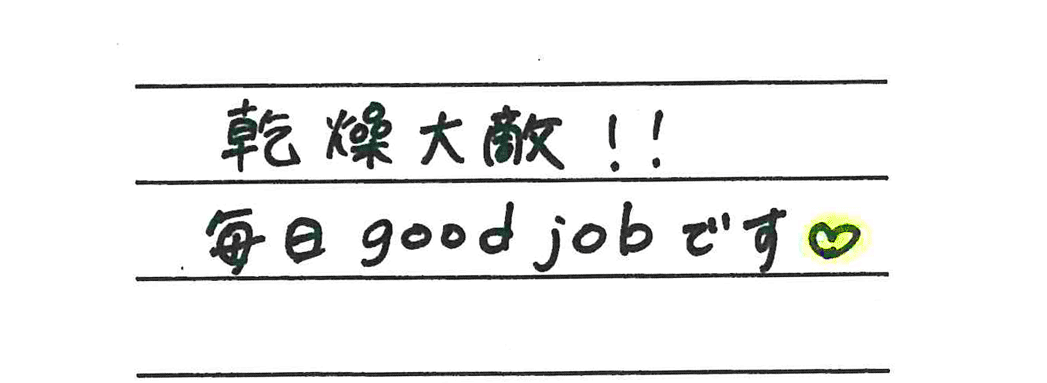 乾燥大敵!!
毎日good jobです♡